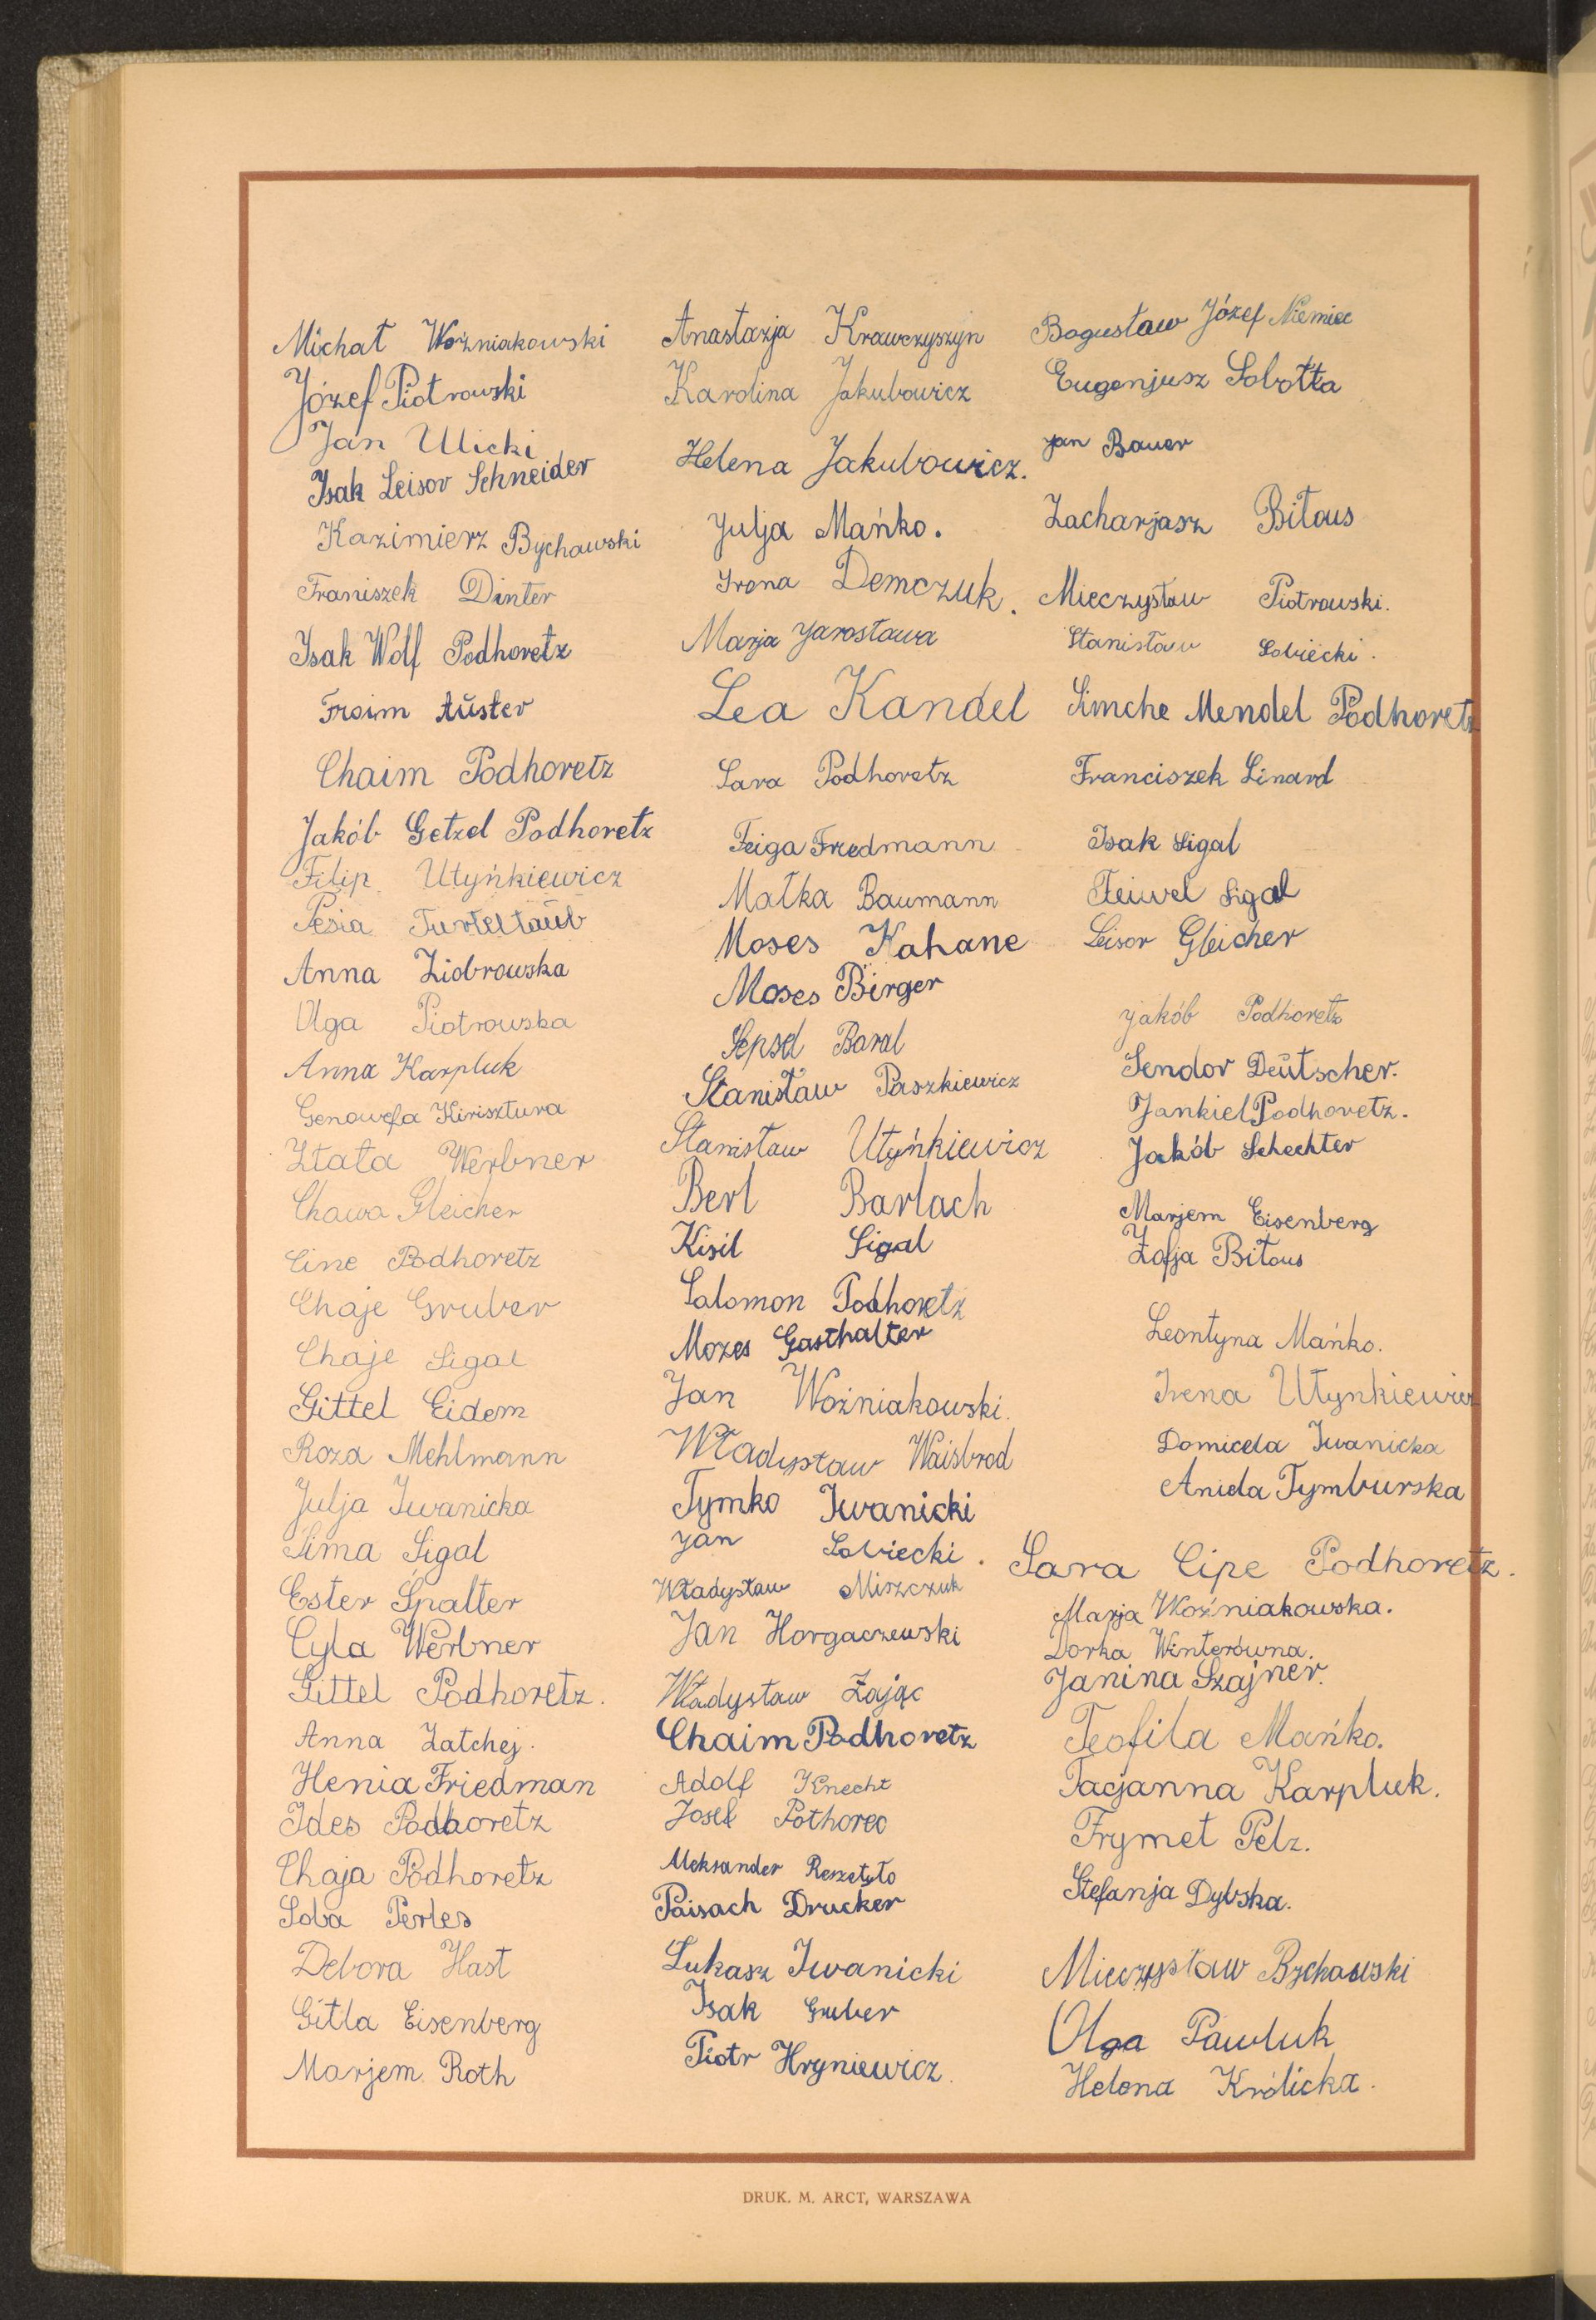 Michał Woźniakowski
Józef Piotrowski
Jan Ulicki
Isak Leisor Schneider
Kazimierz Bychawski
Franiszek Dinter
Isak Wolf Podhoretz
Froim Aŭster
Chaim Podhoretz
Jakób Getzel Podhoretz
Filip Utyńkiewicz
Pesia Turteltaŭb
Anna Ziobrowska
Olga Piotrowska
Anna Karpluk
Genowefa Kirisztura
Złata Werbner
Chawa Gleicher
Cine Podhoretz
Chaje Gruber
Chaje Sigal
Gittel Eidem
Roza Mehlmann
Julja Iwanicka
Sima Sigal
Ester Spalter
Cyla Werbner
Gittel Podhoretz.
Anna Zatchej.
Henia Friedman
Ides Podhoretz
Chaja Podhoretz
Soba Perles
Debora Hast
Gitla Eisenberg
Marjem Roth
Anastazja Krawczyszyn
Karolina Jakubowicz
Helena Jakubowicz.
Julja Mańko.
Irena Demczuk.
Marja Jarosława
Lea Kandel
Sara Podhoretz
Feiga Friedmann
Małka Baumann
Moses Kahane
Moses Birger
Sepsel Baral
Stanisław Paszkiewicz
Stanisław Utyńkiewicz
Berl Barlach
Kisil Sigal
Salomon Podhoretz
Mozes Gasthalter
Jan Woźniakowski.
Władysław Waisbrod
Tymko Iwanicki
Jan Sobiecki.
Władysław Miszczuk
Jan Horgaczewski
Władysław Zając
Chaim Podhoretz
Adolf Knecht
Josel Pothorec
Aleksander Reszetyło
Paisach Drucker
Łukasz Iwanicki
Isak Gruber
Piotr Hryniewicz.
Bogusław Józef Niemiec
Eugenjusz Sobotta
Jan Bauer
Zacharjasz Biłous
Mieczysław Piotrowski.
Stanisław Sobiecki.
Simche Mendel Podhoretz
Franciszek Linard
Isak Sigal
Feiwel Sigal
Leisor Gleicher
Jakób Podhoretz
Sendor Deŭtscher.
Jankiel Podhoretz.
Jakób Schechter
Marjem Eisenberg
Zofja Biłous
Leontyna Mańko.
Irena Utynkiewicz
Domicela Iwanicka
Aniela Tymburska
Sara Cipe Podhoretz.
Marja Woźniakowska.
Dorka Winterówna.
Janina Szajner.
Teofila Mańko.
Tacjanna Karpluk.
Frymet Pelz.
Stefanja Dybska.
Mieczysław Bychawski
Olga Pawluk
Helena Królicka.
DRUK. M. ARCT, WARSZAWA